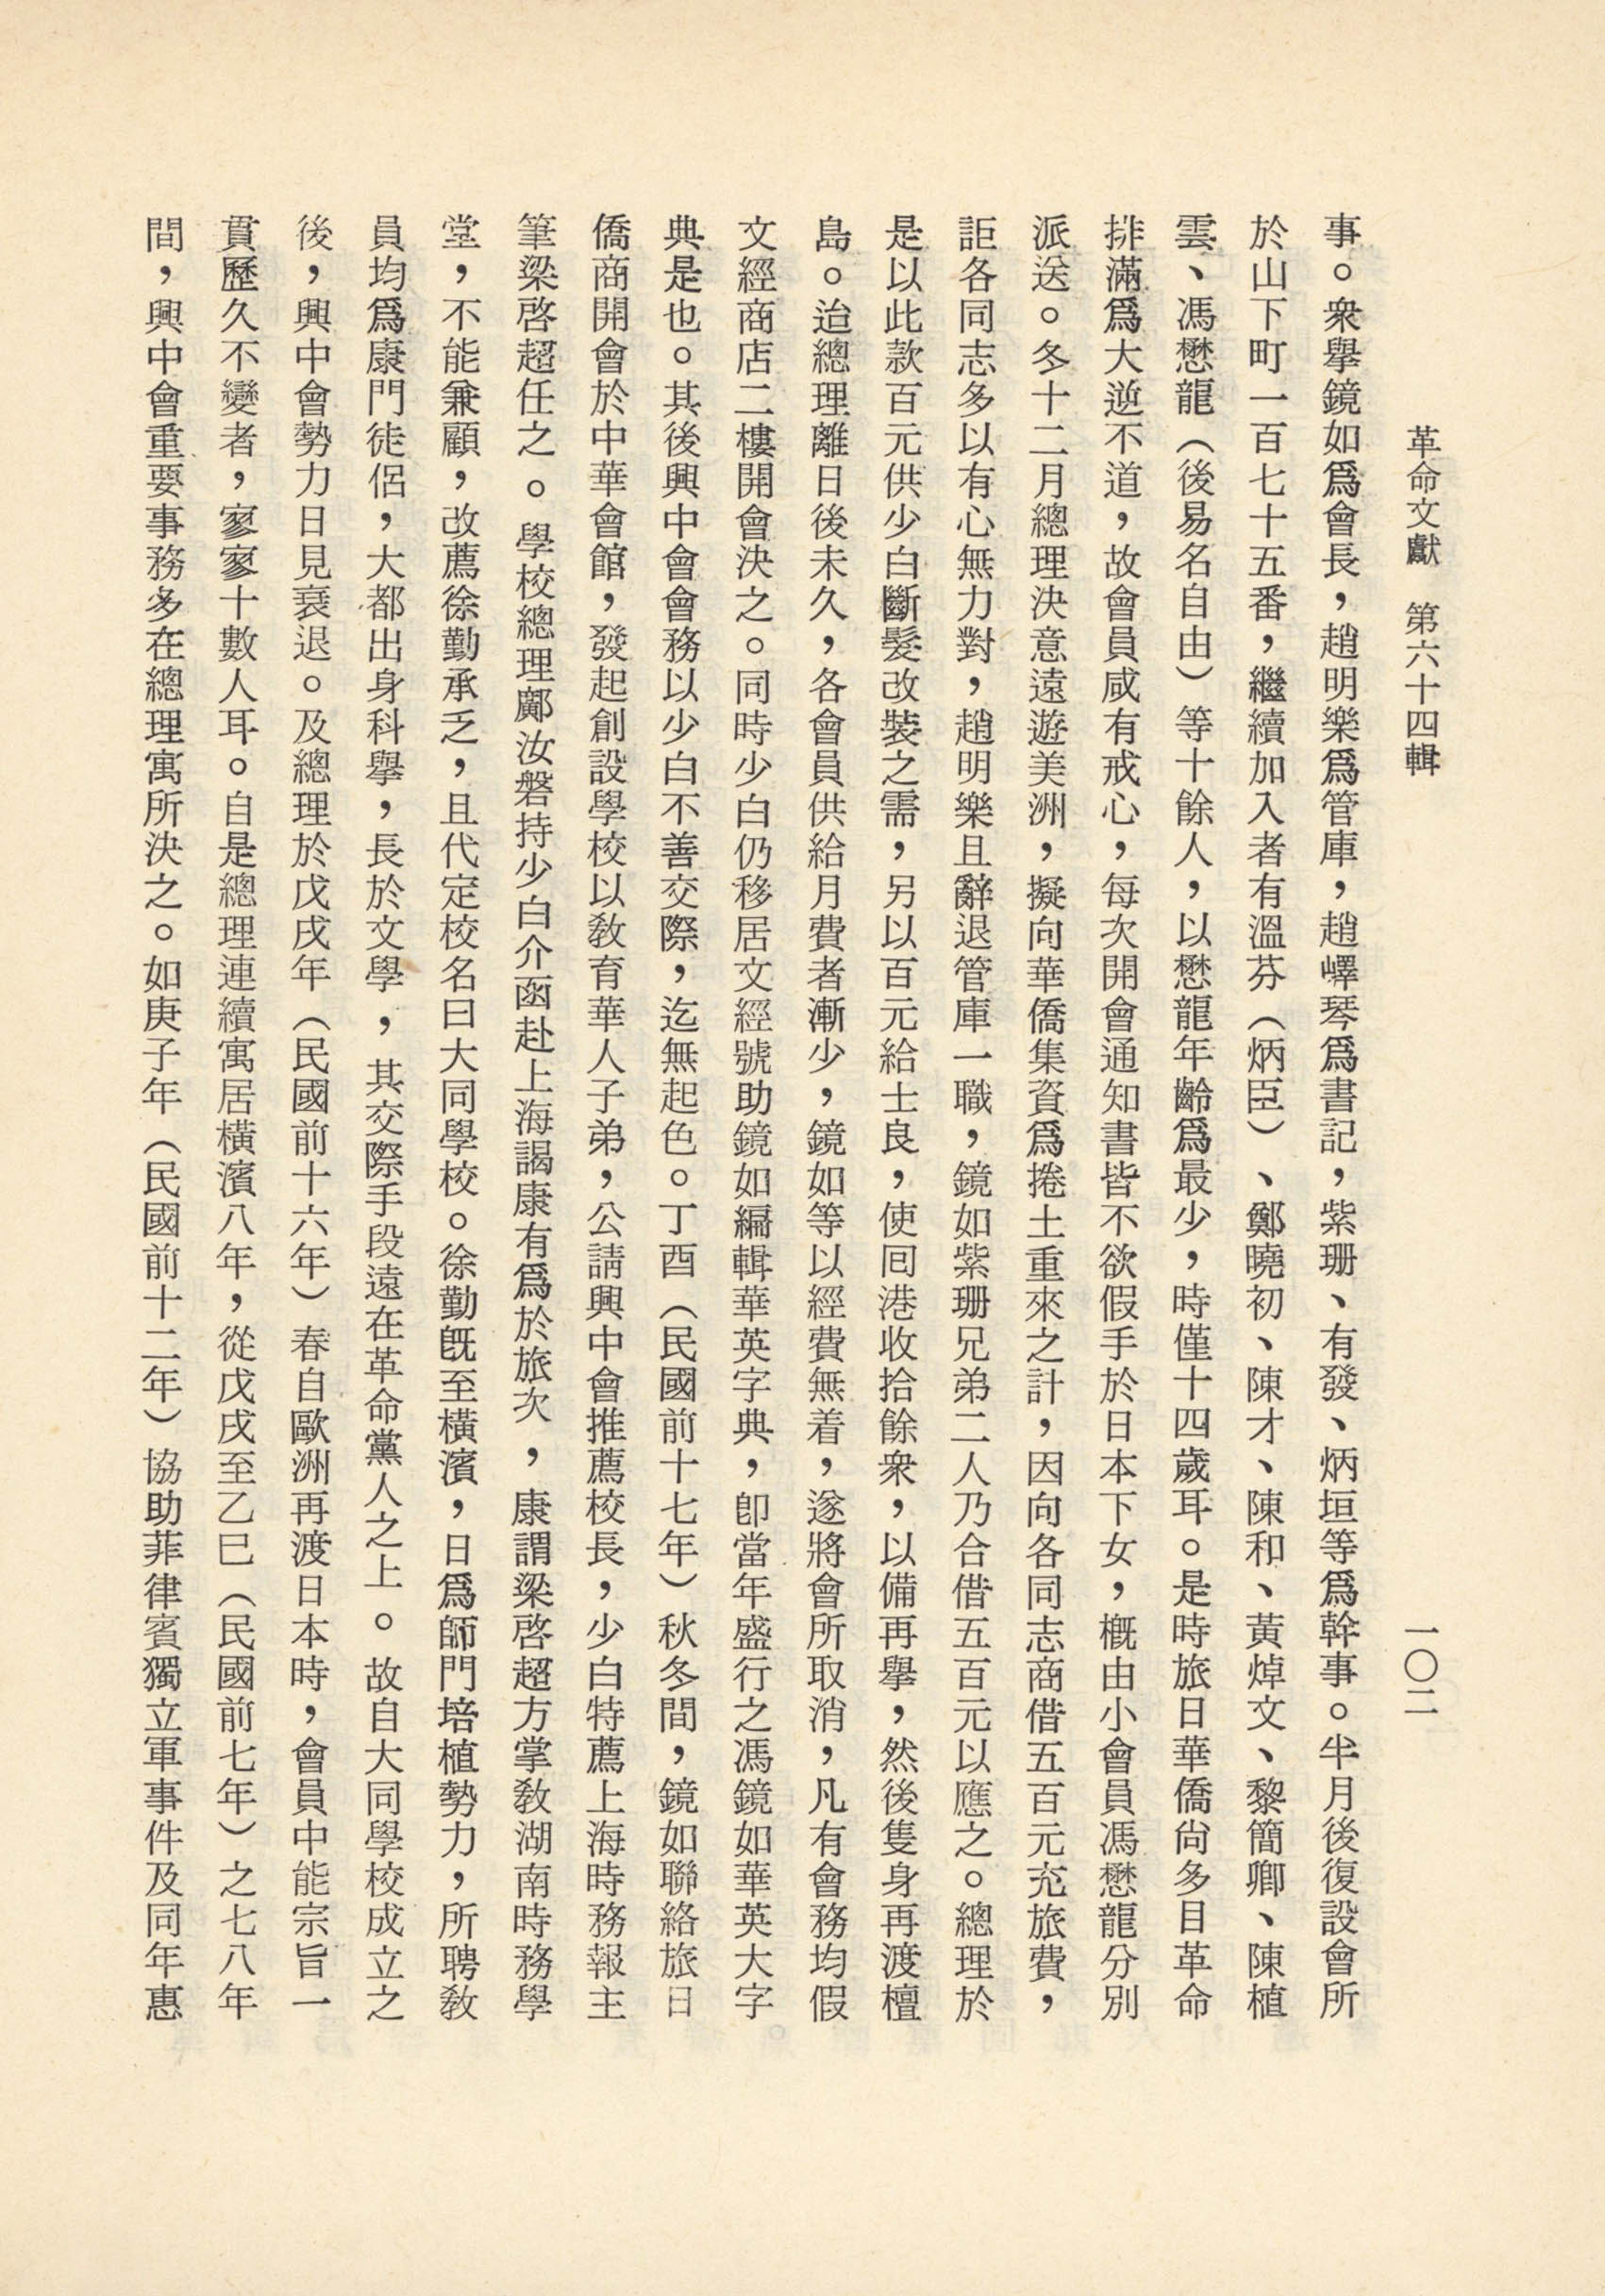 革命文獻　第六十四輯
一〇二
事。衆擧鏡如爲會長，趙明樂爲管庫，趙嶧琴爲書記，紫珊、有發、炳垣等爲幹事。半月後復設會所
於山下町一百七十五番，繼續加入者有溫芬（炳臣）、鄭曉初、陳才、陳和、黃焯文、黎簡卿、陳植
雲、馮懋龍（後易名自由）等十餘人，以懋龍年齡爲最少，時僅十四歲耳。是時旅日華僑尙多目革命
排滿爲大逆不道，故會員咸有戒心，每次開會通知書皆不欲假手於日本下女，槪由小會員馮懋龍分別
派送。冬十二月總理決意遠遊美洲，擬向華僑集資爲捲土重來之計，因向各同志商借五百元充旅費，
詎各同志多以有心無力對，趙明樂且辭退管庫一職，鏡如紫珊兄弟二人乃合借五百元以應之。總理於
是以此款百元供少白斷髮改裝之需，另以百元給士良，使囘港收拾餘衆，以備再擧，然後隻身再渡檀
島。迨總理離日後未久，各會員供給月費者漸少，鏡如等以經費無着，遂將會所取消，凡有會務均假
文經商店二樓開會決之。同時少白仍移居文經號助鏡如編輯華英字典，卽當年盛行之馮鏡如華英大字
典是也。其後興中會會務以少白不善交際，迄無起色。丁酉（民國前十七年）秋冬間，鏡如聯絡旅日
僑商開會於中華會館，發起創設學校以敎育華人子弟，公請興中會推薦校長，少白特薦上海時務報主
筆梁啓超任之。學校總理鄺汝磐持少白介函赴上海謁康有爲於旅次，康謂梁啓超方掌敎湖南時務學
堂，不能兼顧，改薦徐勤承乏，且代定校名曰大同學校。徐勤旣至橫濱，日爲師門培植勢力，所聘敎
員均爲康門徒侶，大都出身科擧，長於文學，其交際手段遠在革命黨人之上。故自大同學校成立之
後，興中會勢力日見衰退。及總理於戊戌年（民國前十六年）春自歐洲再渡日本時，會員中能宗旨一
貫歷久不變者，寥寥十數人耳。自是總理連續寓居橫濱八年，從戊戌至乙巳（民國前七年）之七八年
間，興中會重要事務多在總理寓所決之。如庚子年（民國前十二年）協助菲律賓獨立軍事件及同年惠